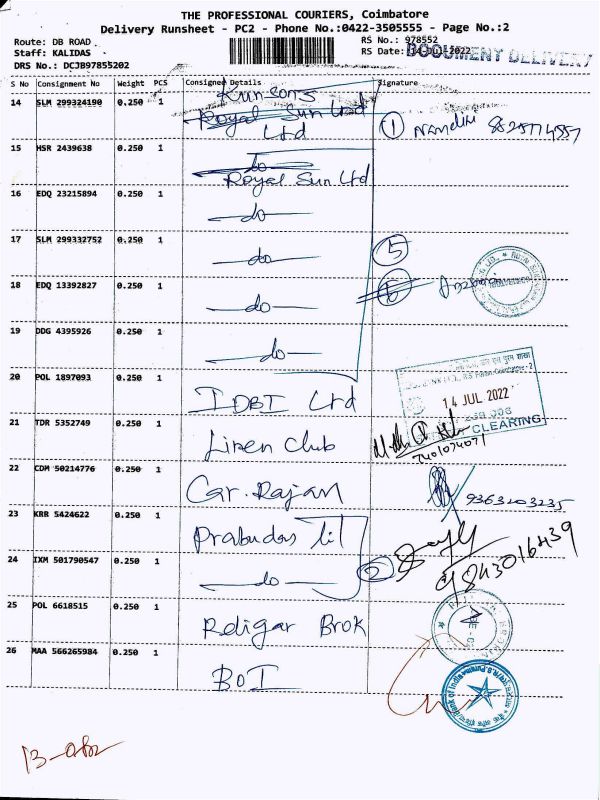 THE PROFESSIONAL COURIERS, Coimbatore
Delivery Runsheet - PC2 - Phone No.:0422-3505555 - Page No.:2
Route: DB ROAD
RS No.: 978552
Staff: KALIDAS
RS Date: 14-Jul-2022
DOCUMENT DELIVERY
DRS No.: DCJB97855202
S No Consignment No Weight PCS Consigned Details Signature
14 SLM 299324190 0.250 1 Kunsons
Royal Sun Ltd
Ltd
1 Nandini
15 HSR 2439638 0.250 1 do
Royal Sun Ltd
16 EDQ 23215894 0.250 1 do
17 SLM 299332752 0.250 1 do 5
18 EDQ 13392827 0.250 1 do 6
19 DDG 4395926 0.250 1 do
20 POL 1897093 0.250 1 IDBI Ltd
14 JUL 2022
CLEARING
21 TDR 5352749 0.250 1 Linen Club
7401074071
22 CDM 50214776 0.250 1 Car. Rajan
9363203235
23 KRR 5424622 0.250 1 Prabudas lil
24 IXM 501790547 0.250 1 do 2
9843016439
25 POL 6618515 0.250 1 Religar Brok
26 MAA 566265984 0.250 1 BOI
Bank of India